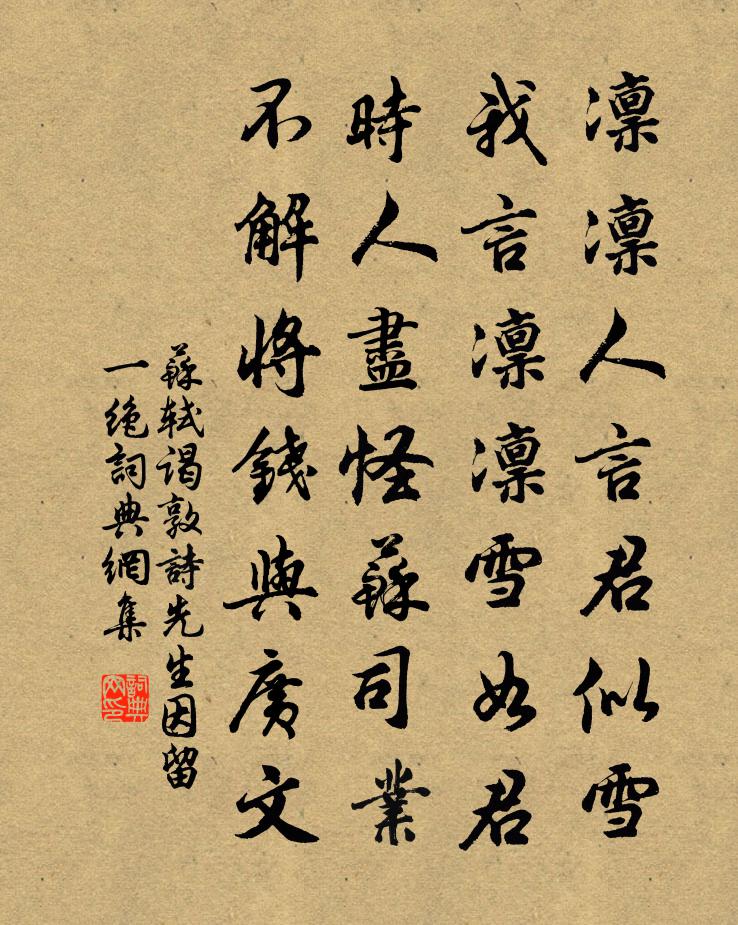 凛凛人言君似雪
我言凛凛雪如君
時人盡怪蘇司業
不解將錢與廣文
蘇軾謁敦詩先生因留
一絶詞典網集
詞典網印